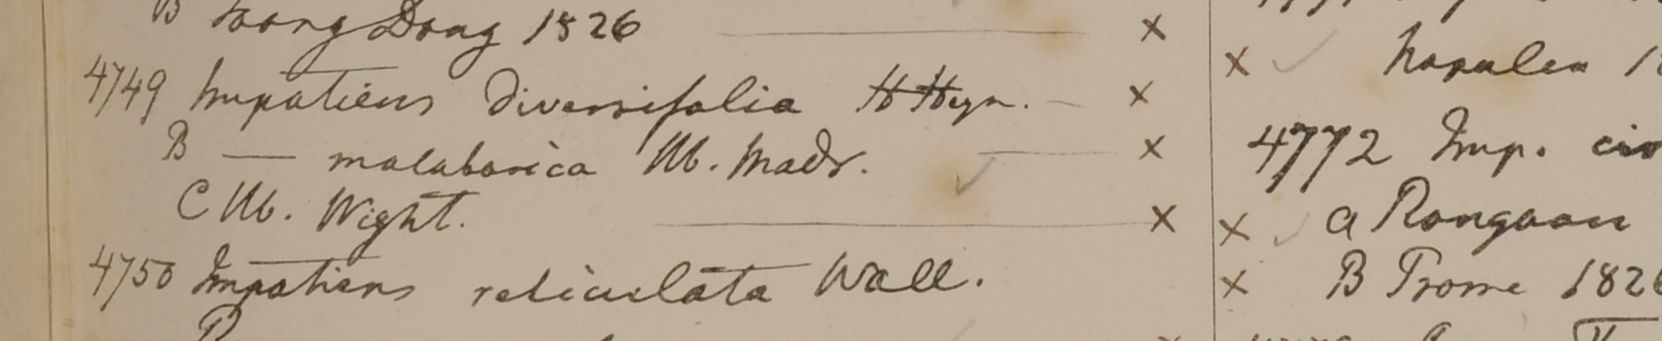 B Toong Dong 1826 ——— x
4749 Impatiens diversifolia H Heyn. – x
B — malabarica Hb. Madr. ✓ — x
C Hb. Wight. ——— x
4750 Impatiens reticulata Wall.
x ✓ Napalea
4772 Imp. cir
x ✓ a Rongoon
x B Prome 1826